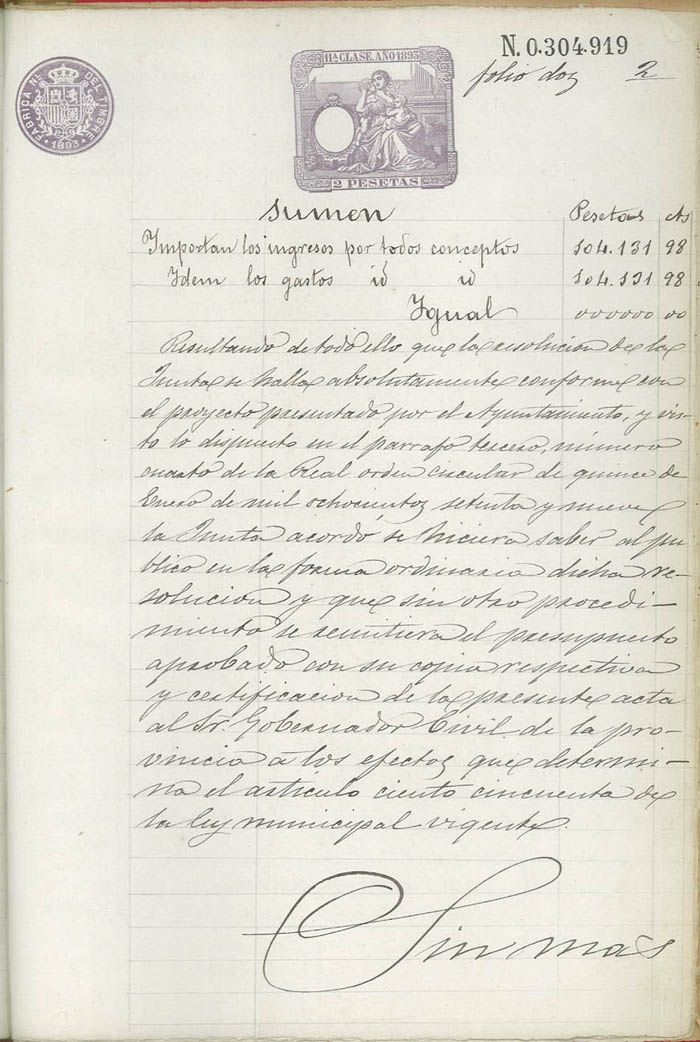 N.0.304.919
11ª CLASE. AÑO 1893
folio dos 2
FABRICA NL. DEL TIMBRE
1893
2 PESETAS
Sumen Pesetas Cts
Importan los ingresos por todos conceptos 104.131 98
Idem los gastos id id 104.131 98
Igual 000000 00
Resultando de todo ello que la resolucion de la
Junta se halla absolutamente conforme con
el proyecto presentado por el Ayuntamiento, y vis-
to lo dispuesto en el parrafo tercero, número
cuarto de la Real orden circular de quince de
Enero de mil ochocientos setenta y nueve
la Junta acordó se hiciera saber al pu-
blico en la forma ordinaria dicha re-
solucion y que sin otro procedi-
miento se remitiera el presupuesto
aprobado con su copia respectiva
y certificacion de la presente acta
al Sr. Gobernador Civil de la pro-
vinicia á los efectos que determi-
na el artículo ciento cincuenta de
la ley municipal vigente.
Sin más